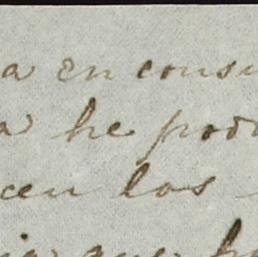 a en consi
a he podi
cen los
ia que h